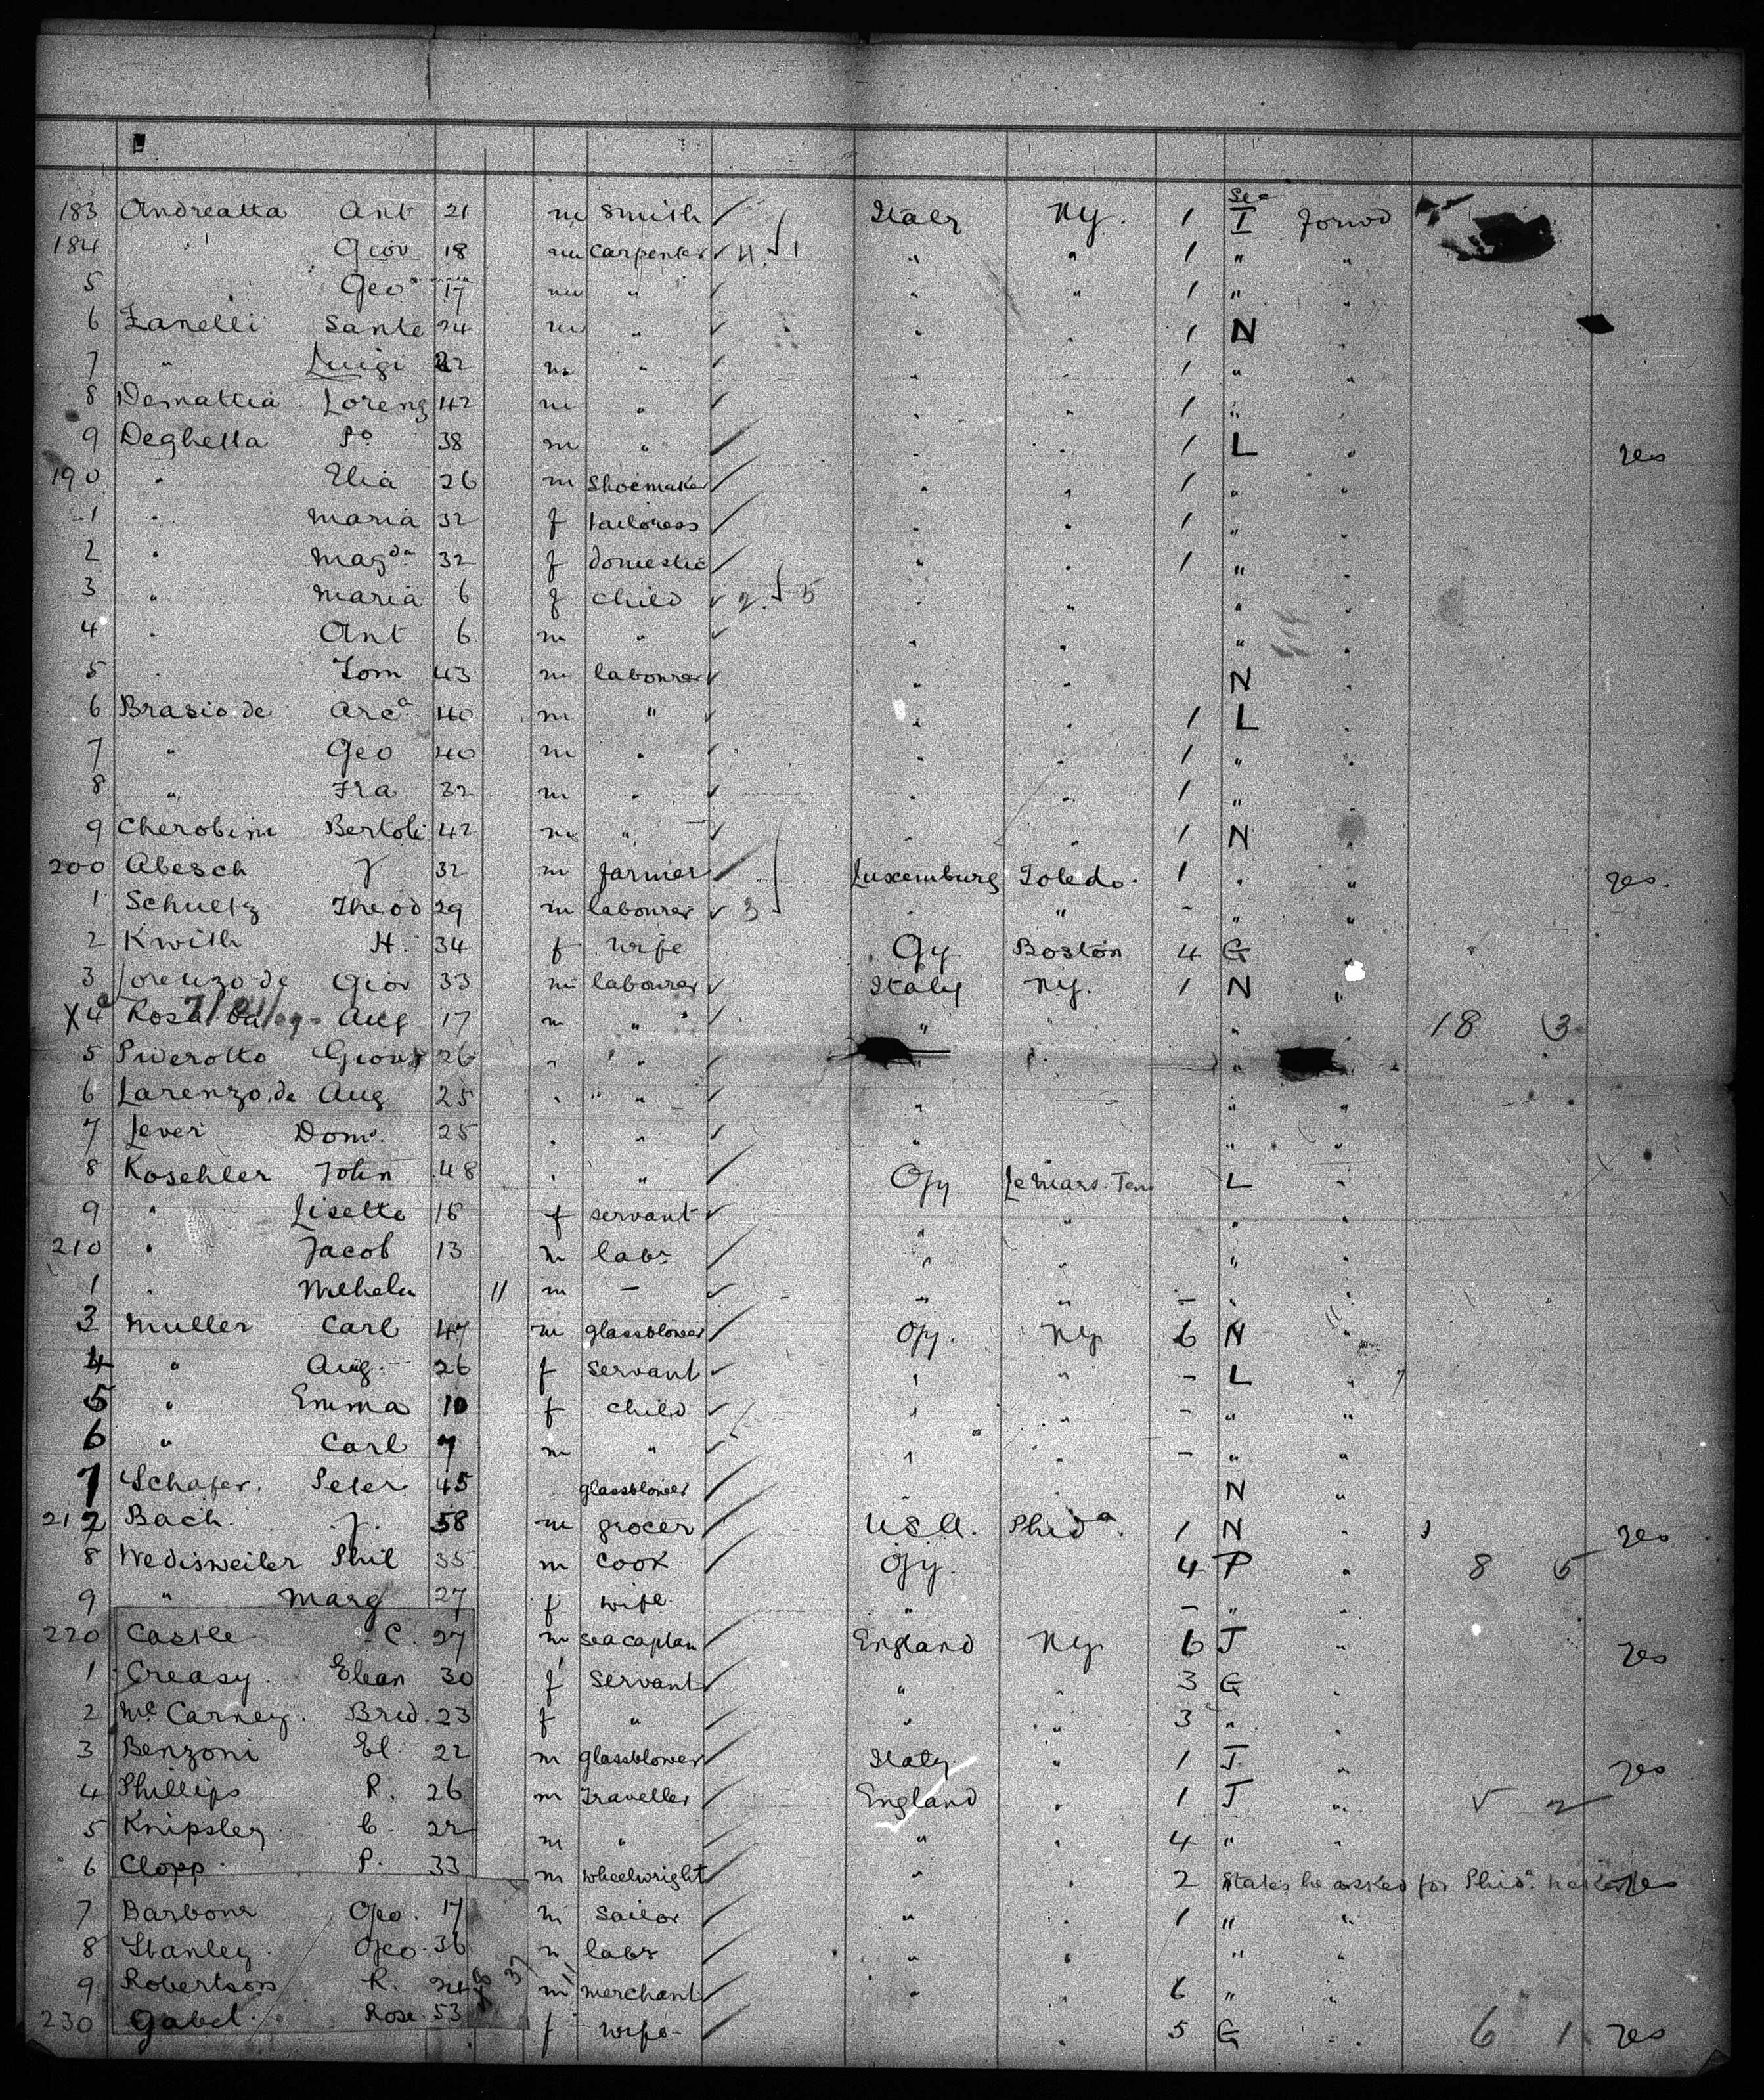 183 Andreatta Ant 21 m Smith Italy Ny. 1 I Forwd
184 " Giov 18 m Carpenter 4 1 " " 1 " "
5 Geo 17 m " " " 1 " "
6 Zanelli Sante 24 m " " " 1 N "
7 " Luigi 22 m " " " 1 " "
8 Demattia Lorenz 42 m " " " 1 " "
9 Deghetta Po 38 m " " " 1 L " yes
190 " Elia 26 m Shoemaker " " 1 " "
1 " Maria 32 f tailoress " " 1 " "
2 " Magda 32 f domestic " " 1 " "
3 " Maria 6 f child 2 5 " " " "
4 " Ant 6 m " " " " "
5 " Tom 43 m labourer " " N "
6 Brasio de Arca 40 m " " " 1 L "
7 " Geo 40 m " " " 1 " "
8 " Fra 32 m " " " 1 " "
9 Cherobim Bertoli 42 m " " " 1 N "
200 Abesch J 32 m farmer Luxemburg Toledo 1 " " yes
1 Schultz Theod 29 m labourer 3 " " - " "
2 Kwith H. 34 f wife Gy Boston 4 G "
3 Lorenzo de Giov 33 m labourer Italy Ny. 1 N "
X4 Rosa Aug 17 m " " " " 18 3
5 Piverotto 26 " " " " " "
6 Larenzo.de Aug 25 " " " " "
7 Lever Dom. 25 " " " " "
8 Kosehler John 48 " " Gy Lemars. L "
9 " Lisette 18 f servant " " " "
210 " Jacob 13 m labr " " " "
1 " Wilhelm 11 m - " " - " "
3 Muller Carl 47 m glassblower Gy. Ny 6 N "
4 " Aug. 26 f servant " " - L "
5 " Emma 10 f child " " - " "
6 " Carl 7 m " " " - " "
7 Schafer. Peter 45 glassblower " " N "
212 Bach. J. 58 m grocer USA. Phida. 1 N " 1 yes
8 Wedisweiler Phil 35 m cook Gy. 4 P " 8 5
9 " Marg 27 f wife " - " "
220 Castle C. 27 m seacaptan England Ny 6 J " yes
1 Creasy. Elean 30 f Servant " " 3 G "
2 McCarney. Brid. 23 f " " " 3 " "
3 Benzoni El. 22 m glassblower Italy " 1 J " yes
4 Phillips R. 26 m Traveller England " 1 J " 5 2
5 Knipsley C. 22 m " " " 4 " "
6 Clopp. P. 33 m wheelwright " " 2 States he asked for Phida. yes
7 Barbour Geo. 17 m Sailor " " 1 " "
8 Stanley. Geo. 36 m labr " " " "
9 Robertson R. 24 37 m merchant " " 6 " "
230 Gabel. Rose. 53 f wife " 5 G " 6 1 yes